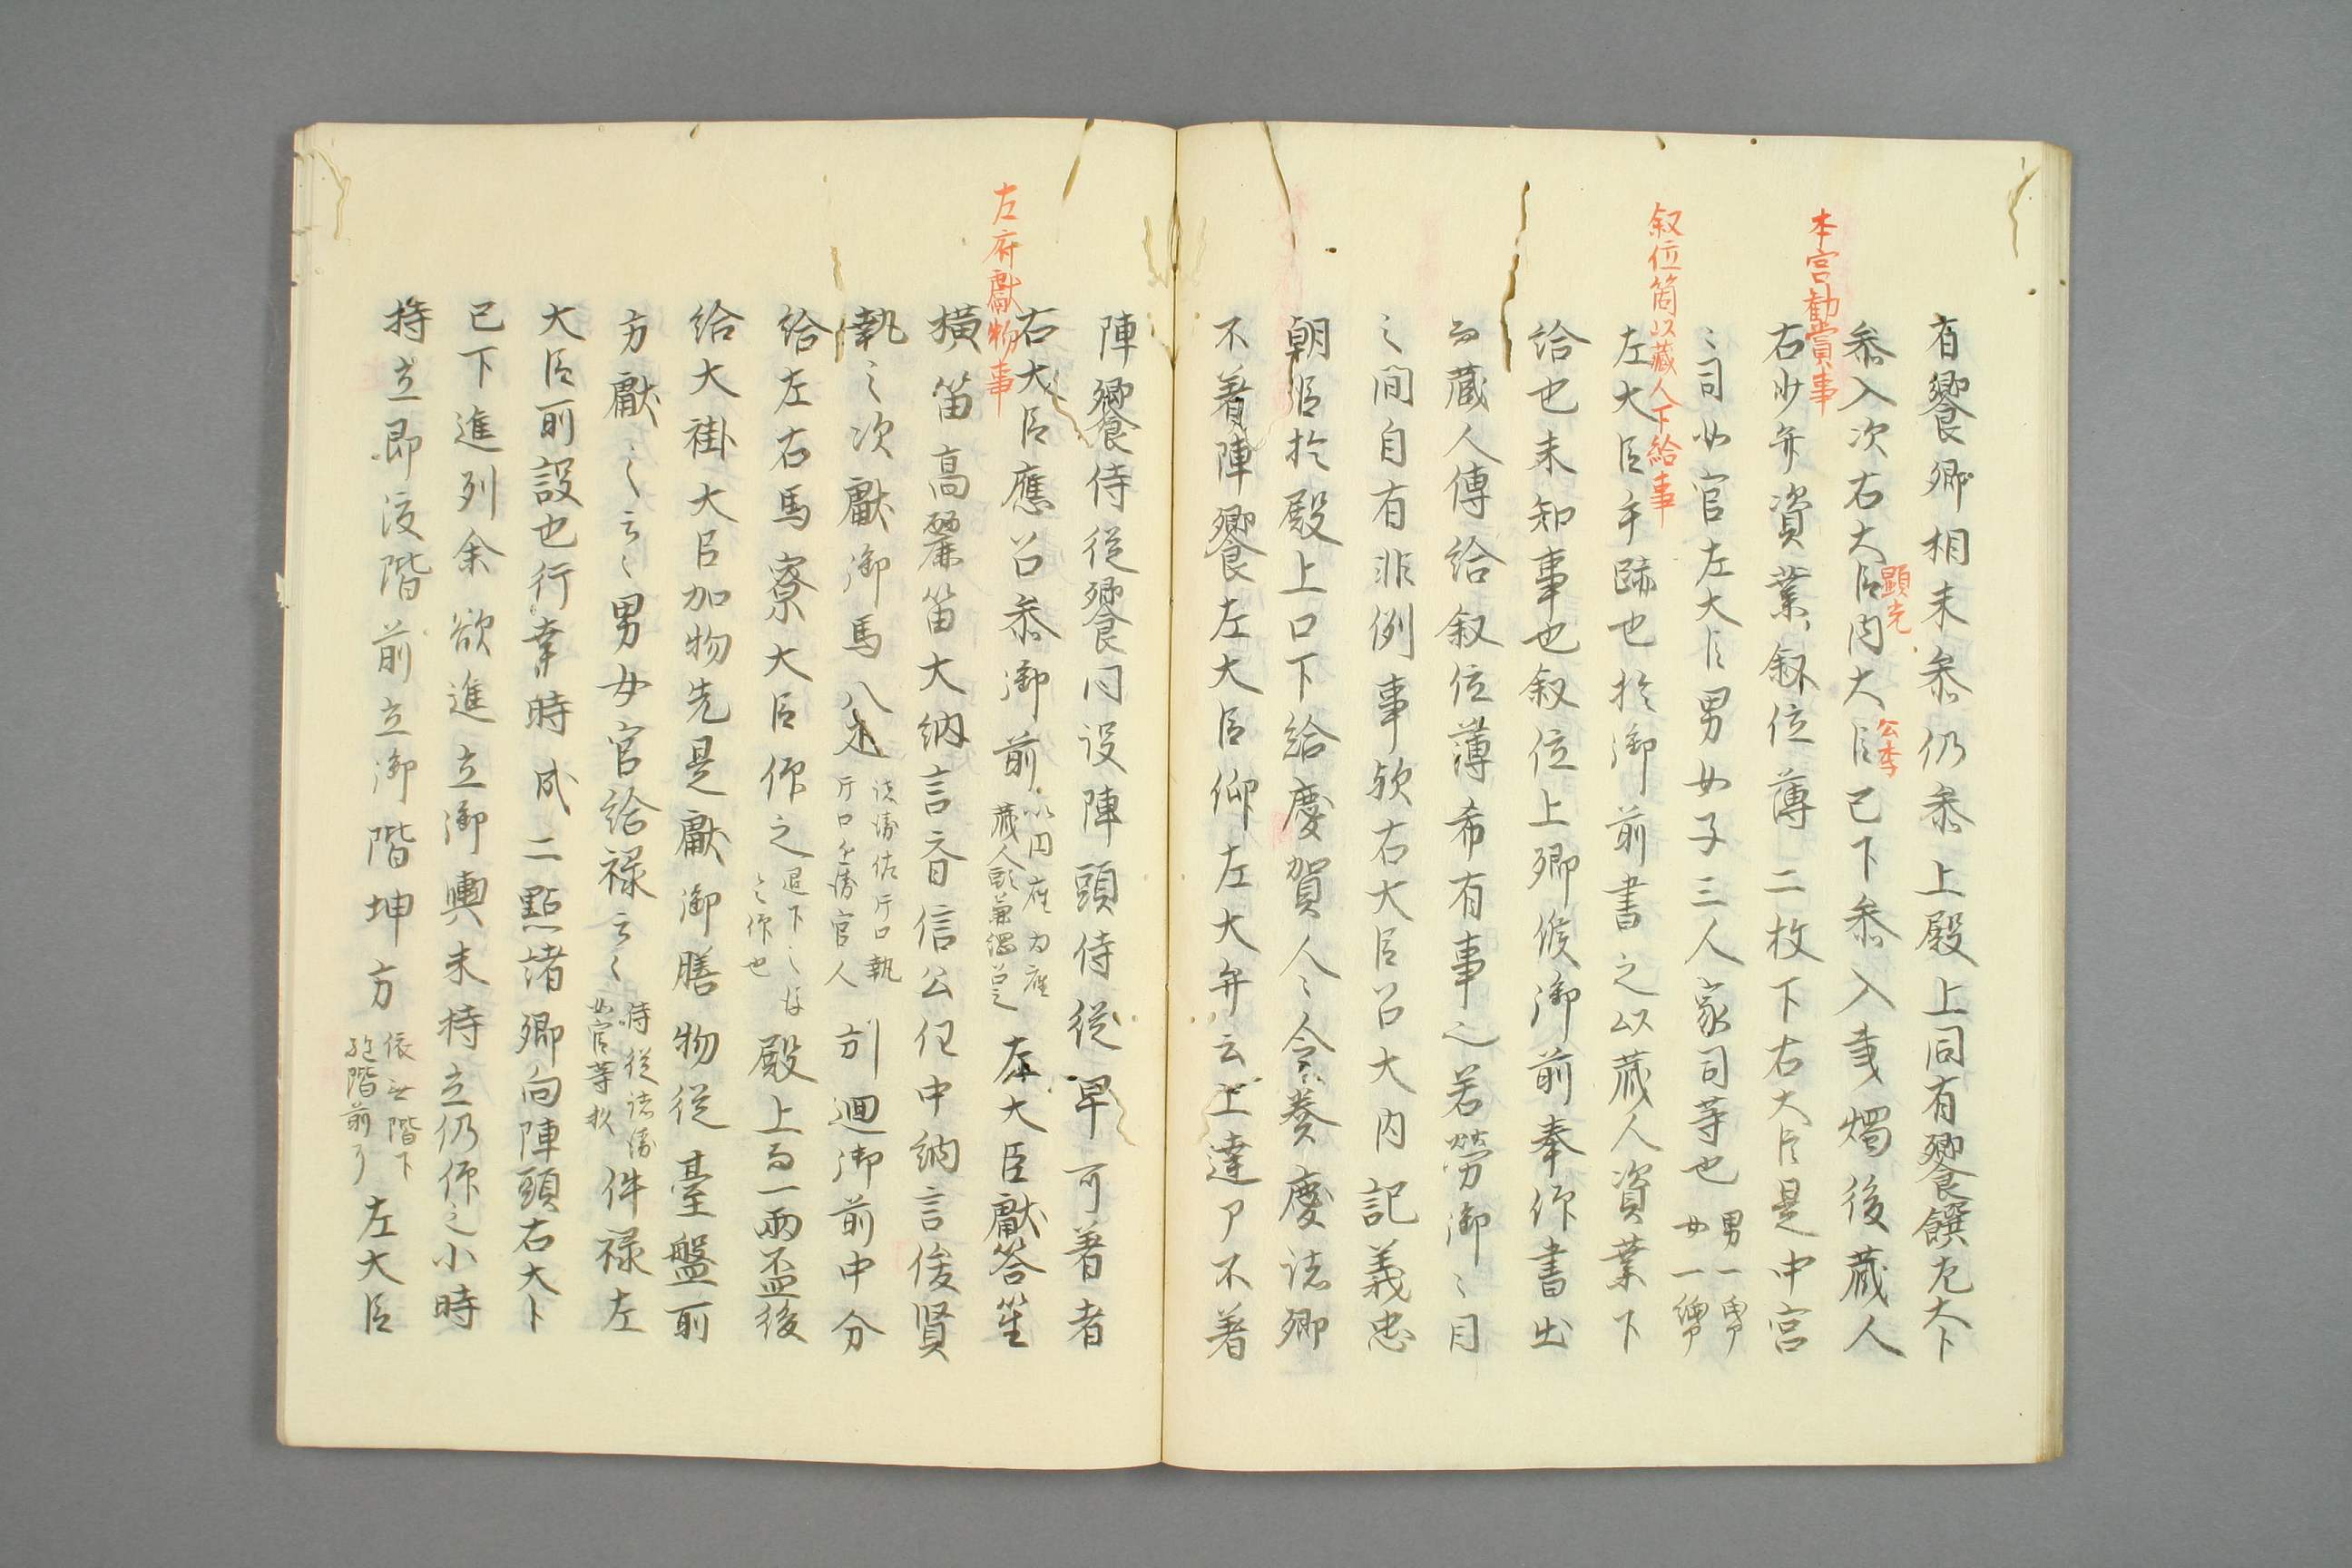 有饗卿相未参仍参上殿上同有饗饌左大卜
本宮勧賞事
参入次右大臣内大臣已下参入秉燭後蔵人
顕光
公季
右少弁資業叙位薄二枚下右大臣是中宮
〻司女官左大臣男女子三人家司等也
男一男
女一
叙位筥以蔵人下給事
左大臣手跡也於御前書之以蔵人資業下
給也未知事也叙位上卿候御前奉作書出
而蔵人傳給叙位薄希有事之若労御〻目
之間自有非例事欤右大臣召大内記義忠
朝臣於殿上口下給慶賀人〻令奏慶諸卿
不着陣饗左大臣仰左大弁云上達ア不着
陣饗侍従饗同设陣頭侍従早可著者
左府獻物事
右大臣應召参御前
以円座為座
蔵人頭兼綱召之
左大臣獻答笙
横笛高麗笛大納言斉信公任中納言俊賢
執之次獻御馬八疋
諸衛佐片口執
片口近衛官人
引廻御前中分
給左右馬寮大臣作之
退下之後
〻作也
殿上而一兩盃後
給大褂大臣加物先是獻御膳物従臺盤所
方獻之云〻男女官給禄云〻
侍従諸衛
女官等欤
件禄左
大臣所設也行幸時戌二點諸卿向陣頭右大卜
已下進列余欲進立御輿未持立仍作之小時
持立即渡階前立御階坤方
依無階下
經階前了
左大臣